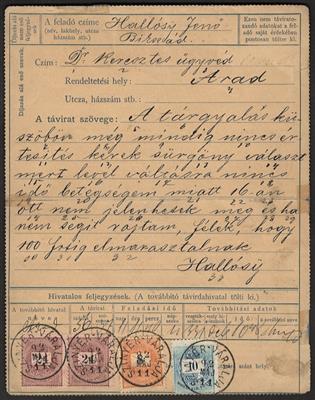 A feladó czíme
(név, lakhely, utcza, házszám stb.)
Hallósy Jenő
Ezen nem távirato-
zandó adatokat a fel-
adó saját érdekében
pontosan töltse ki.
Díjazás alá eső szavak.
Czím: Dr Keresztes ügyvéd
Rendeltetési hely: Arad
Utcza, házszám stb.
A távirat szövege: A tárgyalás kü-
szöbön még mindig nincs ér-
tesités kérek sürgöny választ
mert levél váltásra nincs
idő betegségem miatt 16-án
ott nem jelenhetek meg és ha
nem segit rajtam, félek, hogy
100 frtig elmarasztalnak
Hallósy
Hivatalos feljegyzések. (A továbbító távirdahivatal tölti ki.)
A továbbító hivatal
A távirat
Feladási idő
Továbbítási adatok
neve
hó
nap
óra
perc
24
24
8
10